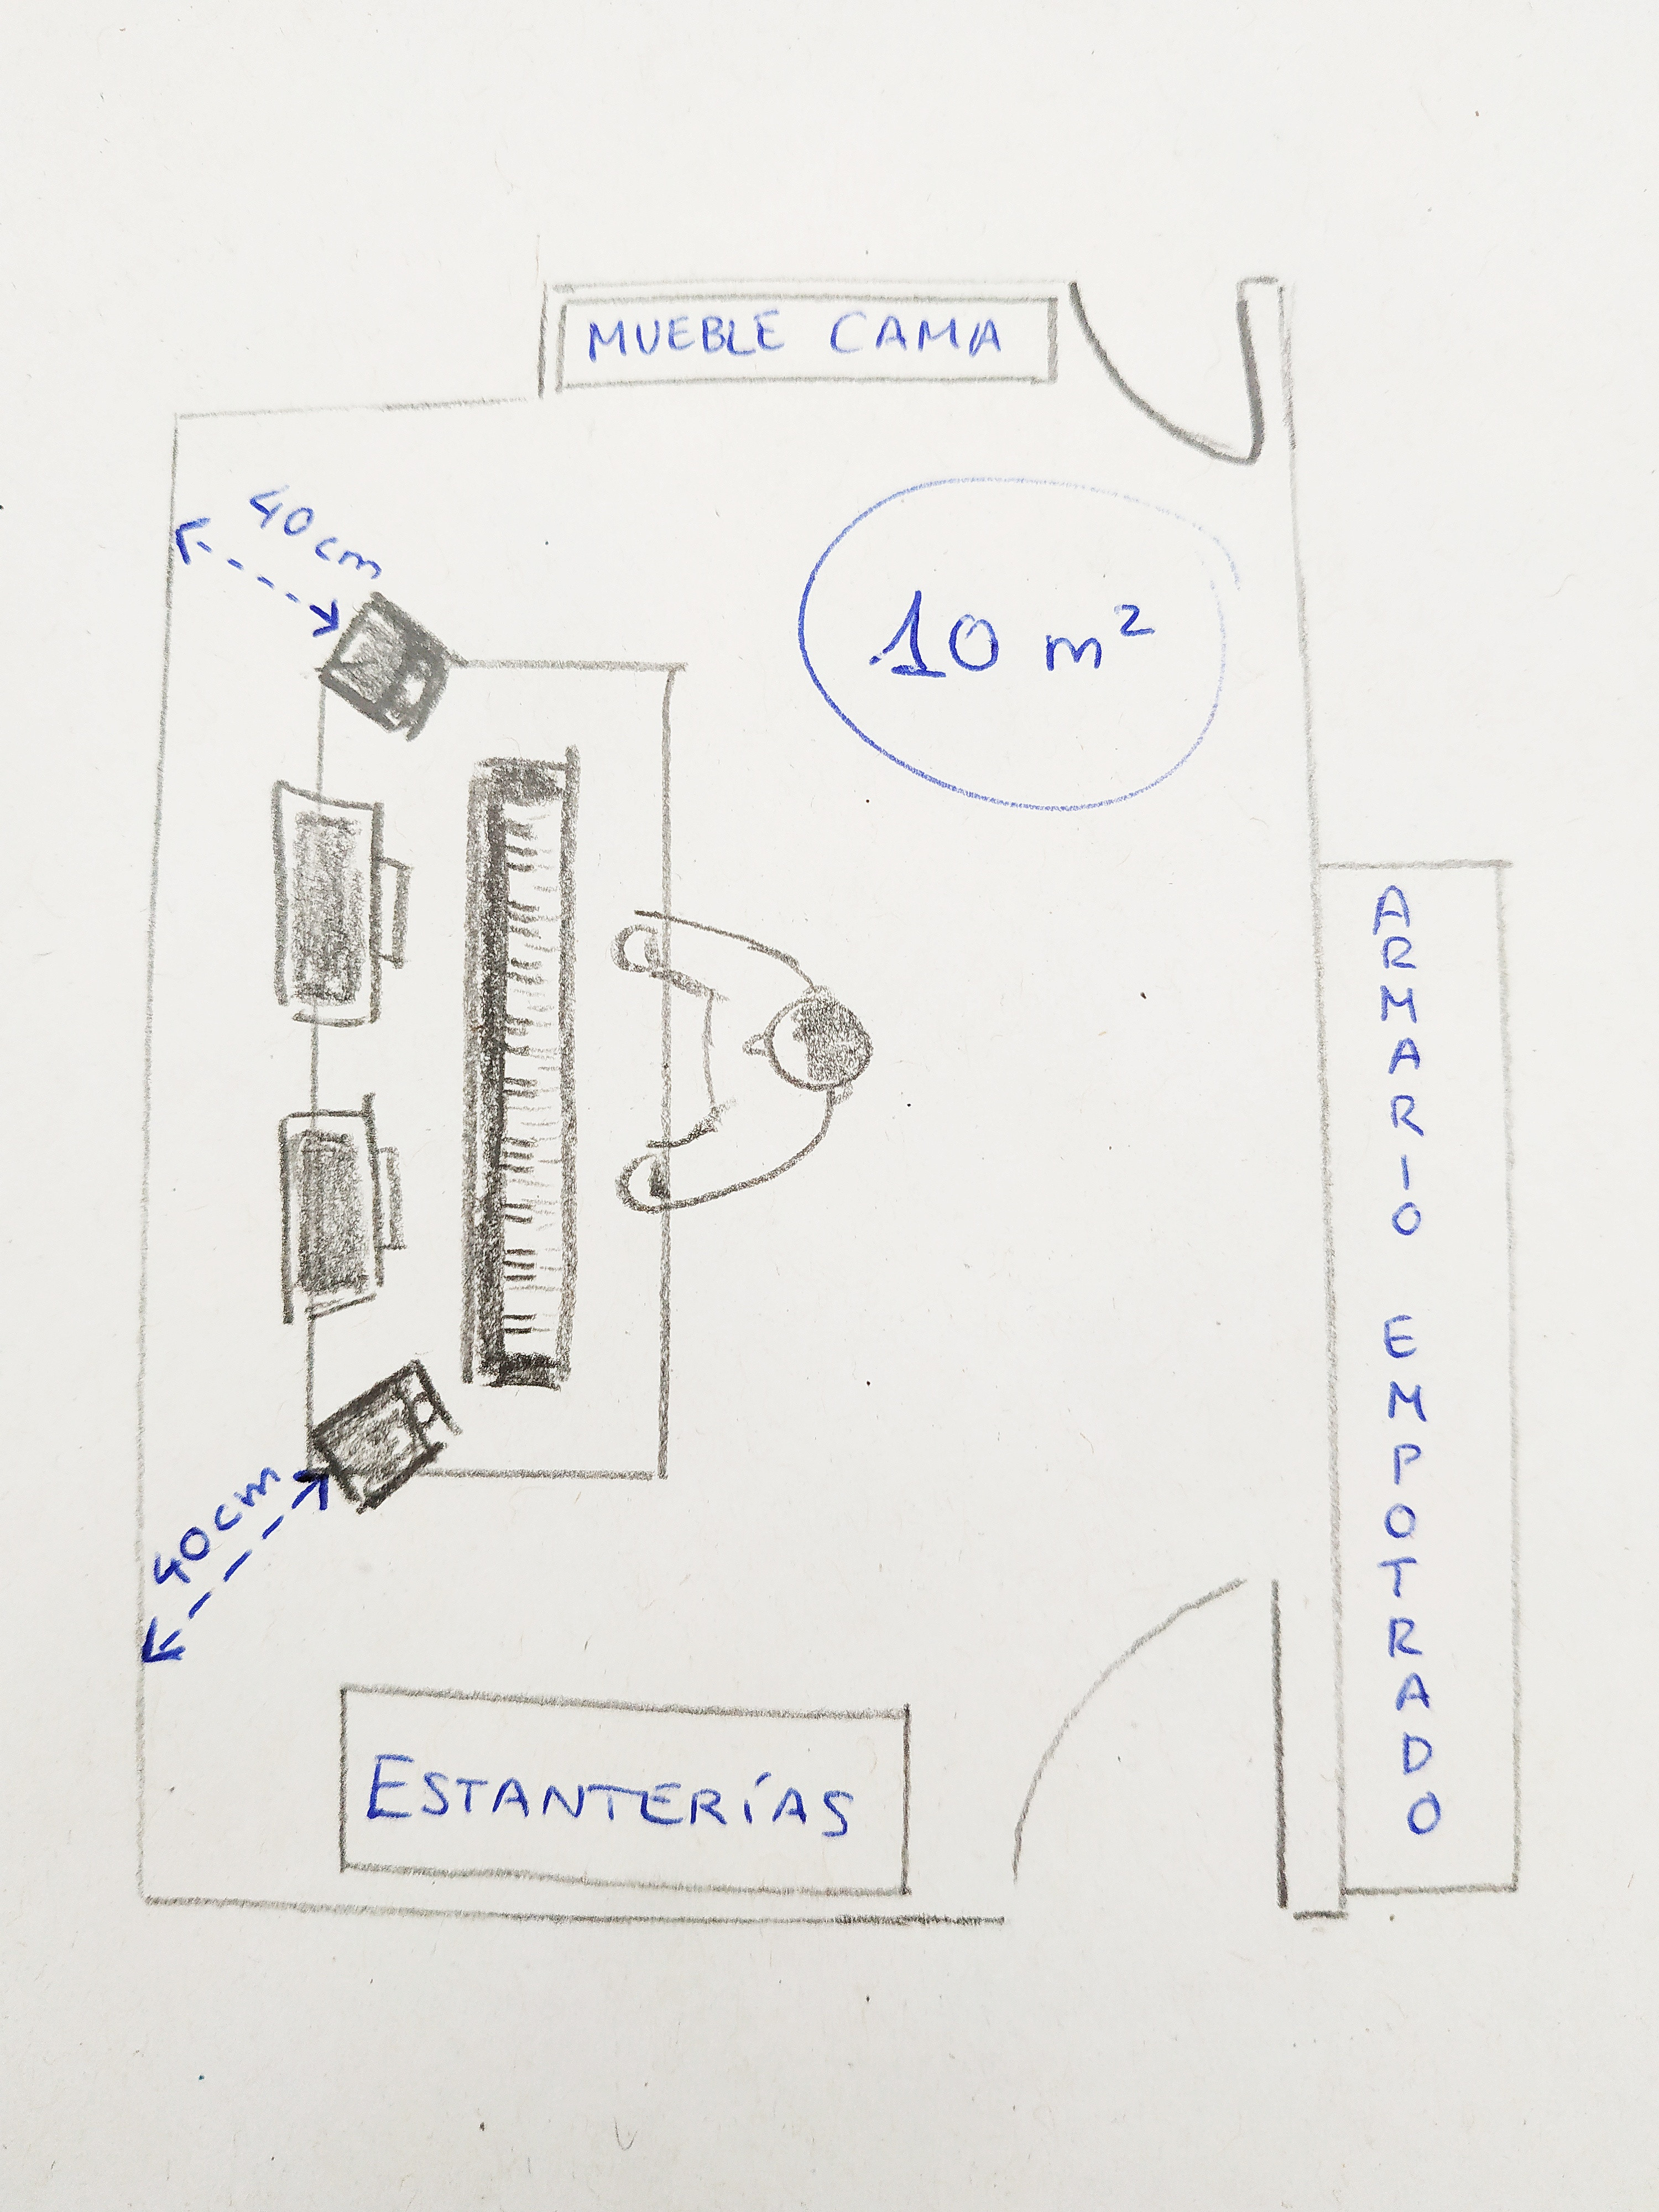 MUEBLE CAMA
40cm
10 m²
ARMARIO EMPOTRADO
40cm
ESTANTERÍAS